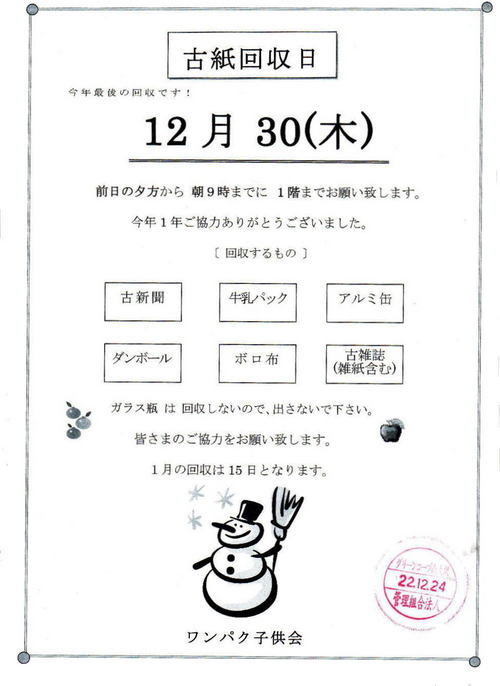 古紙回収日
今年最後の回収です!
12月 30(木)
前日の夕方から 朝9時までに 1階までお願い致します。
今年1年ご協力ありがとうございました。
〔 回収するもの 〕
古新聞 牛乳パック アルミ缶
ダンボール ボロ布 古雑誌
(雑紙含む)
ガラス瓶 は 回収しないので、出さないで下さい。
皆さまのご協力をお願い致します。
1月の回収は15日となります。
22.12.24
管理組合法人
ワンパク子供会